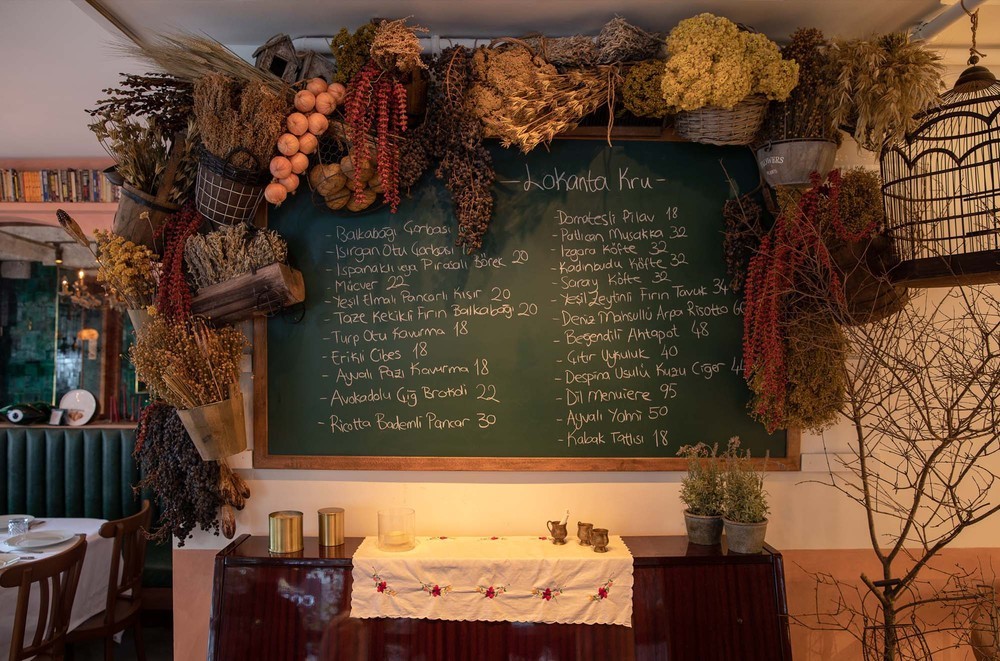 - Lokanta Kru -
- Balkabağı Çorbası
- Isırgan Otu Çorbası
- Ispanaklı veya Pırasalı Börek 20
- Mücver 22
- Yeşil Elmalı Pancarlı Kısır 20
- Taze Kekikli Fırın Balkabağı 20
- Turp Otu Kavurma 18
- Erikli Cibes 18
- Ayvalı Pazı Kavurma 18
- Avokadolu Çiğ Brokoli 22
- Ricotta Bademli Pancar 30
- Domatesli Pilav 18
- Patlıcan Musakka 32
- Izgara Köfte 32
- Kadınbudu Köfte 32
- Saray Köfte 32
- Yeşil Zeytinli Fırın Tavuk 34
- Deniz Mahsullü Arpa Risotto
- Beğendili Ahtapot 48
- Çıtır Uykuluk 40
- Despina Usulü Kuzu Ciğer
- Dil Menuiere 95
- Ayvalı Yahni 50
- Kabak Tatlısı 18
FLOWERS